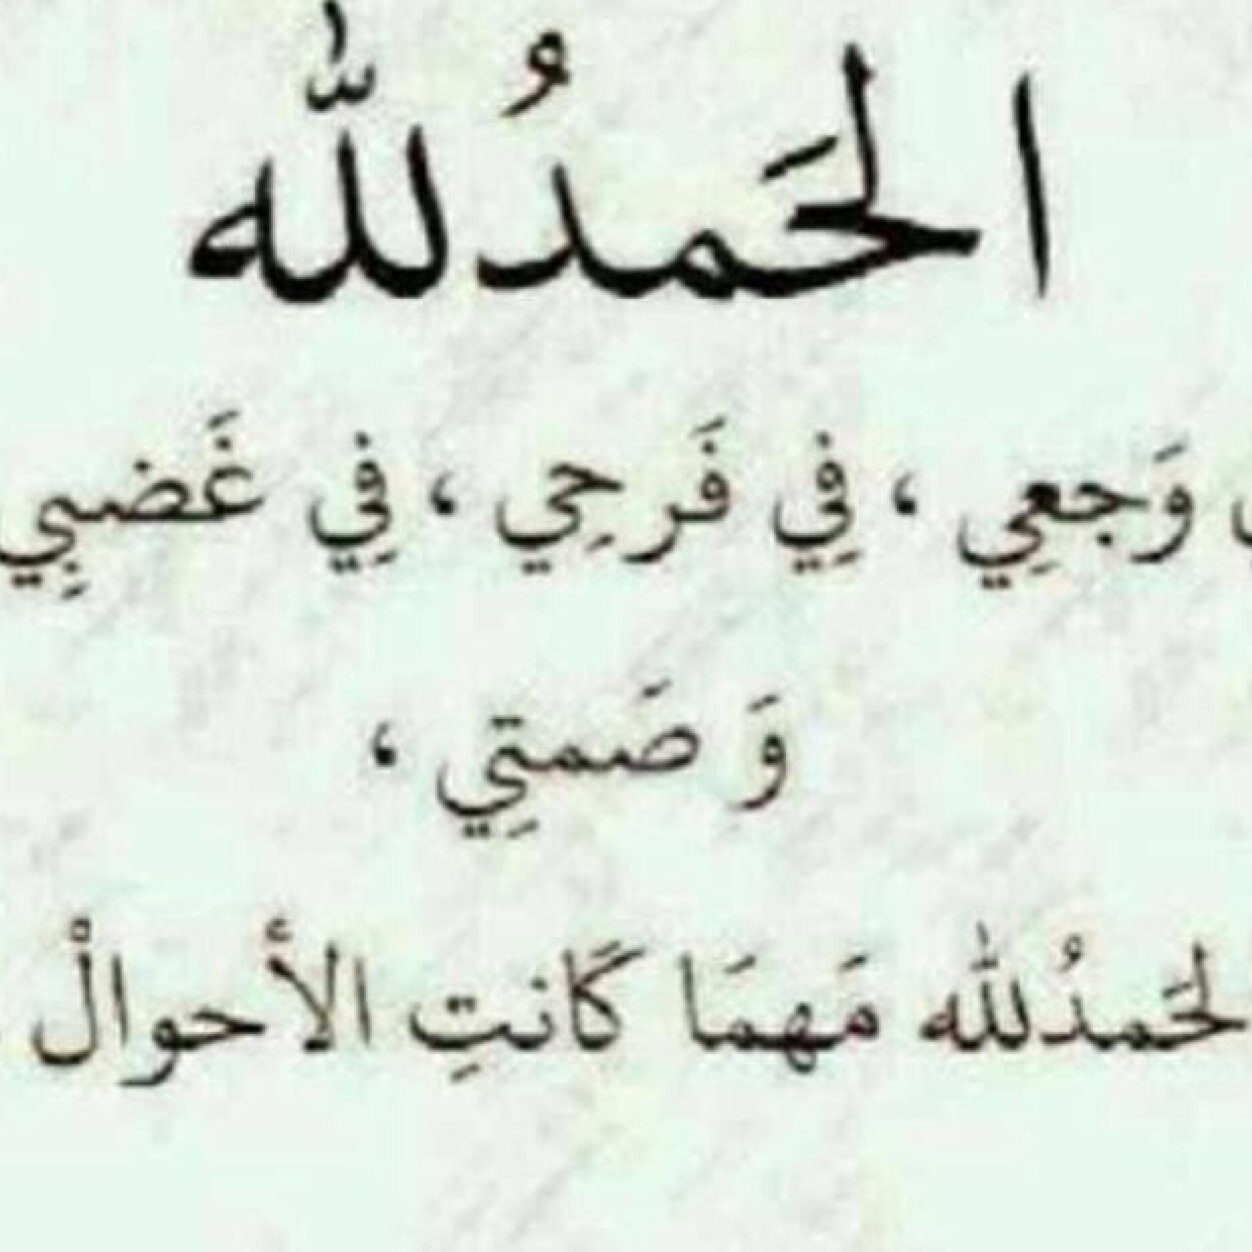 الحَمدُللّٰه
وَجعِي ، فِي فَرحِي ، فِي غَضبِي
وَ صَمتِي ،
لحَمدُللٰه مَهمَا كَانتِ الأحوالْ